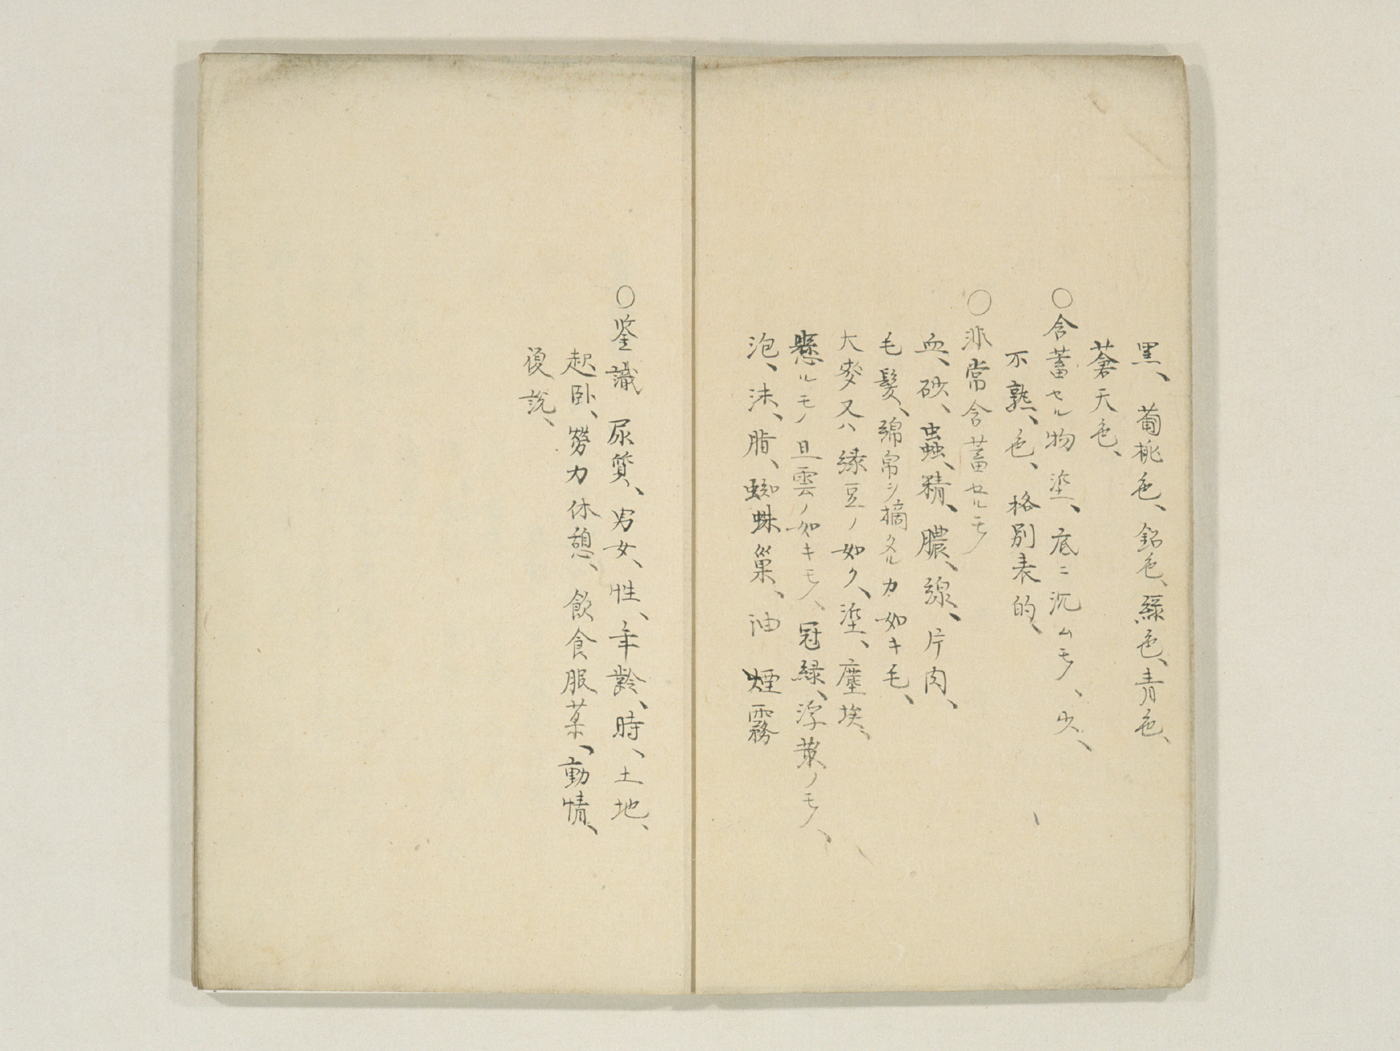 黒、葡桃色、鉛色、緑色、青色、
蒼天色、
〇含蓄セル物 滓、底ニ沉ムモノ、少、
不熟、色、格別表的、
〇非常含蓄セルモノ
血、砂、蟲、精、膿、線、片肉、
毛髪、綿帛ヲ摘タルカ如キ毛、
大麥又ハ緑豆ノ如ク、滓、塵埃、
懸ルモノ且雲ノ如キモノ、冠緑、浮蒸ノモノ、
泡、沫、脂、蜘蛛巣、油 煙霧
〇鉴識 尿質、男女、性、年齢、時、土地、
起卧、労力休憩、飲食服薬、動情、
復説、